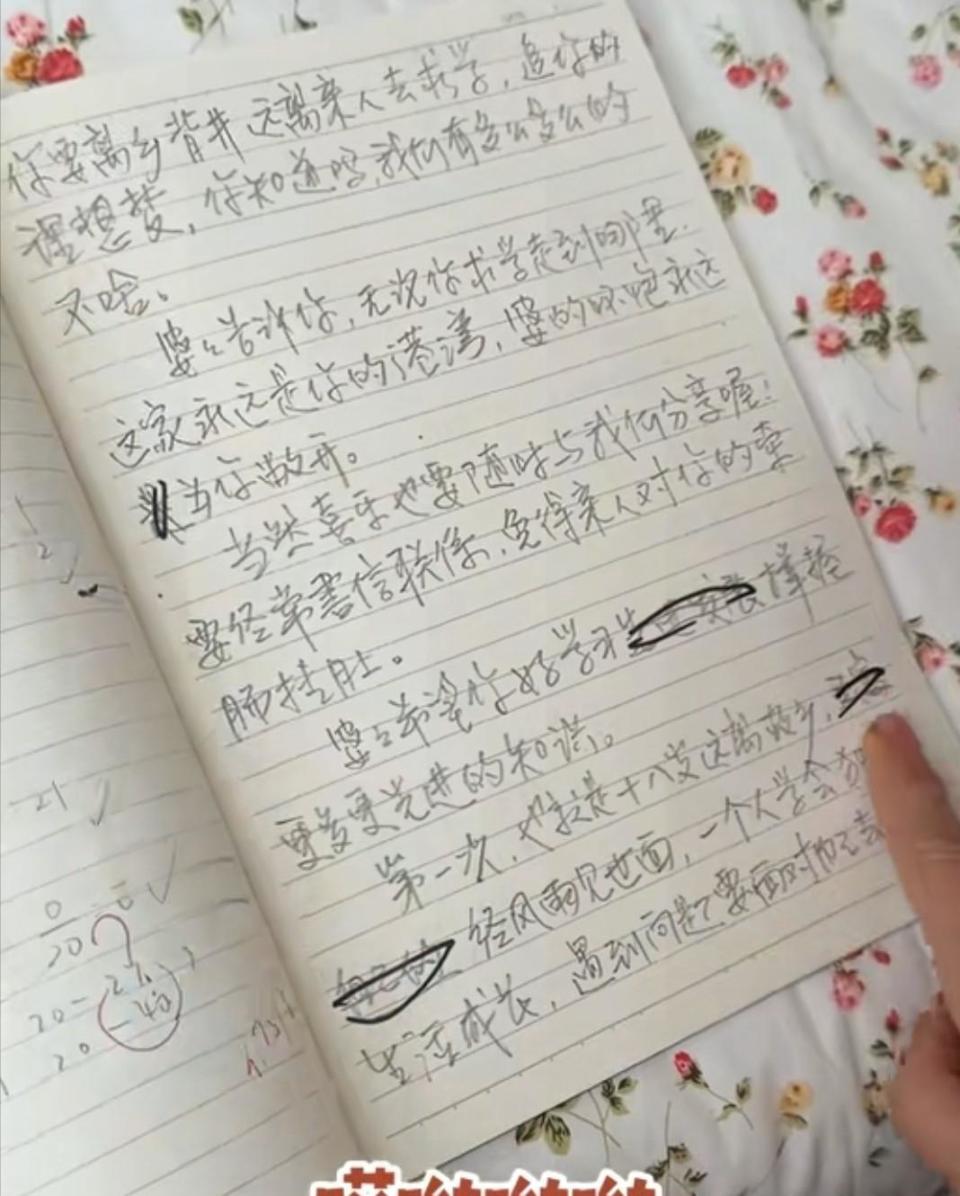 你要离乡背井远离亲人去求学，追你的
理想梦，你知道吗，我们有多么多么的
不啥。
婆婆告许你，无论你求学走到哪里，
这家永远是你的港湾，婆的怀抱永远
为你敞开。
当然喜乐也要随时与我们分享喔！
要经常書信联係，免得亲人对你的牵
肠挂肚。
婆婆希望你好学习 掌握
更多更先进的知识。
第一次，也就是十八岁远离故乡，
经风雨见世面，一个人学会
生活成长，遇到问题要面对
1
2
21
0
20
20 -
20